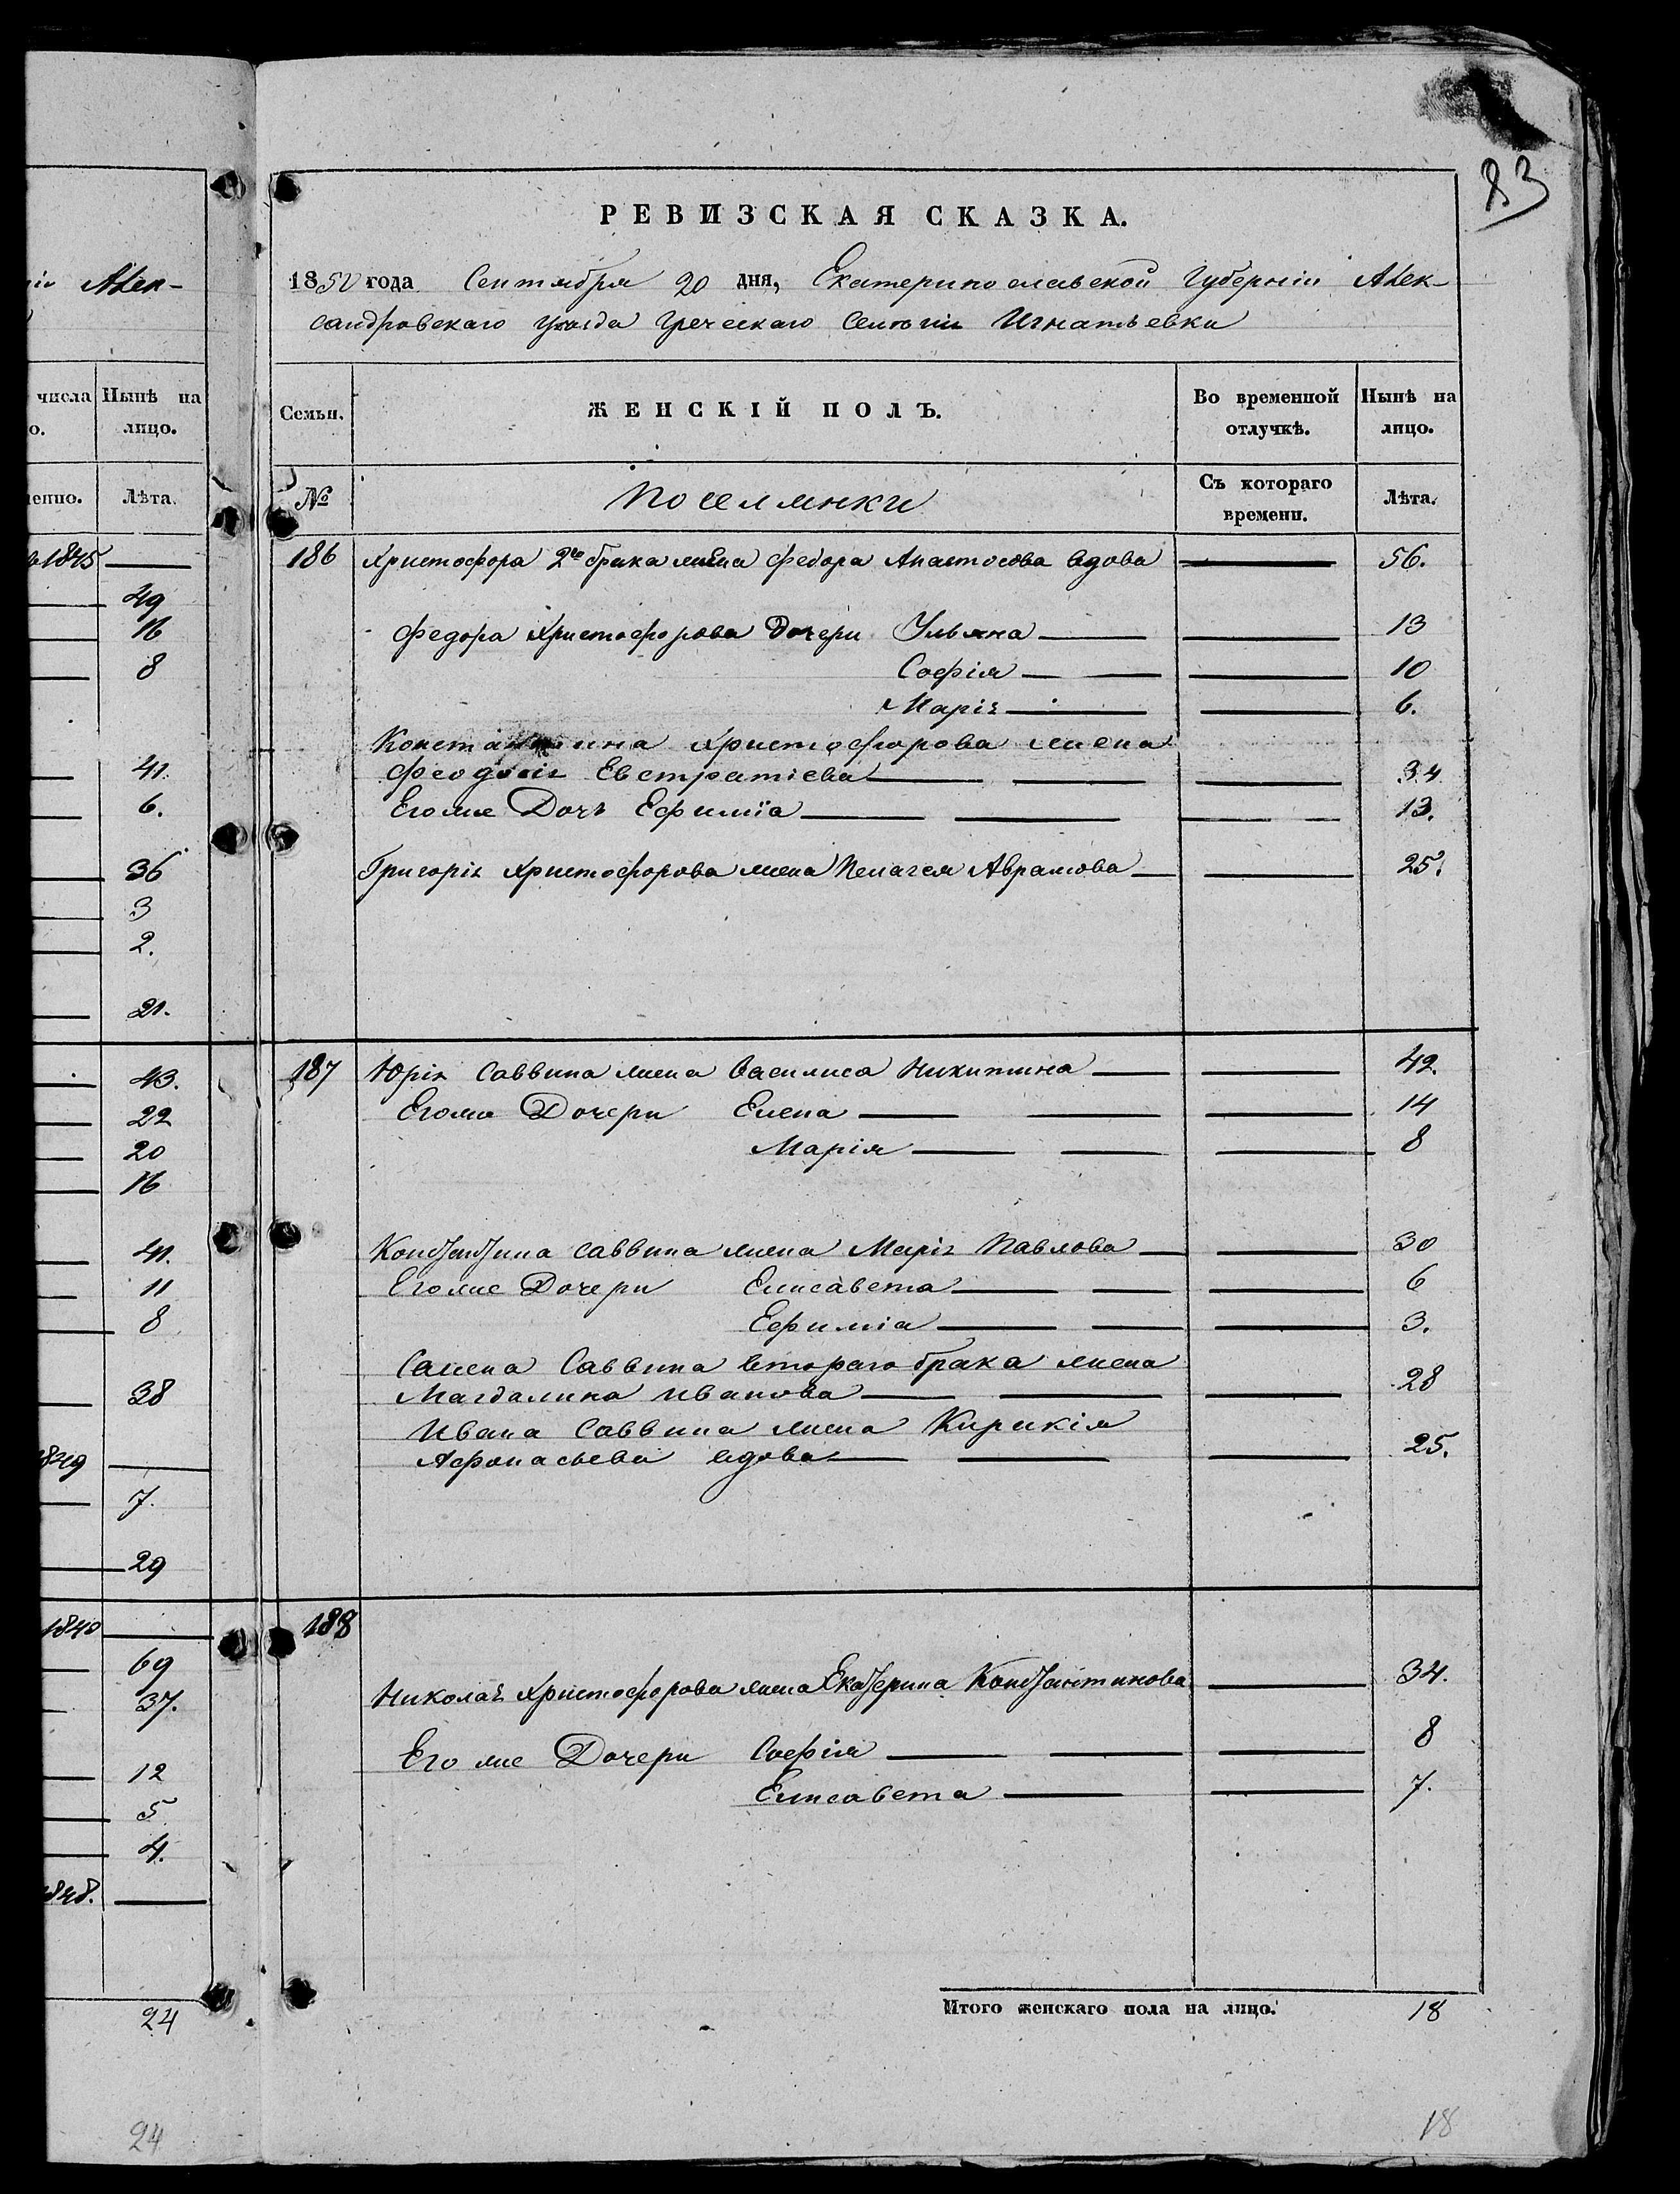 ніи Алек-
числа Нынѣ на
о. лицо.
менно. Лѣта.
1845
49
16
8
41.
6.
36
3
2.
21.
43.
22
20
16
41.
11
8
38
1849
7.
29
1840
69
37.
12
5
4.
1848.
24
24
83
РЕВИЗСКАЯ СКАЗКА.
1850 года Сентября 20 дня, Екатеринославской Губерніи Алек-
сандровскаго уѣзда Греческаго Селенія Игнатьевки
Семьи. ЖЕНСКІЙ ПОЛЪ. Во временной отлучкѣ. Нынѣ на лицо.
№ Поселянки Съ котораго времени. Лѣта.
186 Христофора 2го брака жена Федора Анастасова вдова 56.
Федора Христофорова Дочери Ульяна 13
Софія 10
Марія 6.
Константина Христофорова жена
Феодосія Евстратіева 34
Его же Дочь Ефимїа 13.
Григорія Христофорова жена Пелагея Аврамова 25.
187 Юрія Саввина жена Василиса Никитина 42.
Его же Дочери Елена 14
Марія 8
Константина Саввина жена Марія Павлова 30
Его же Дочери Елисавета 6
Ефиміа 3.
Савена Саввина втораго брака жена
Магдалина Иванова 28
Ивана Саввина жена Кирикія
Афонасьева вдова 25.
188
Николая Христофорова жена Екатерина Константинова 34.
Его же Дочери Софія 8
Елисавета 7.
Итого женскаго пола на лицо. 18
18